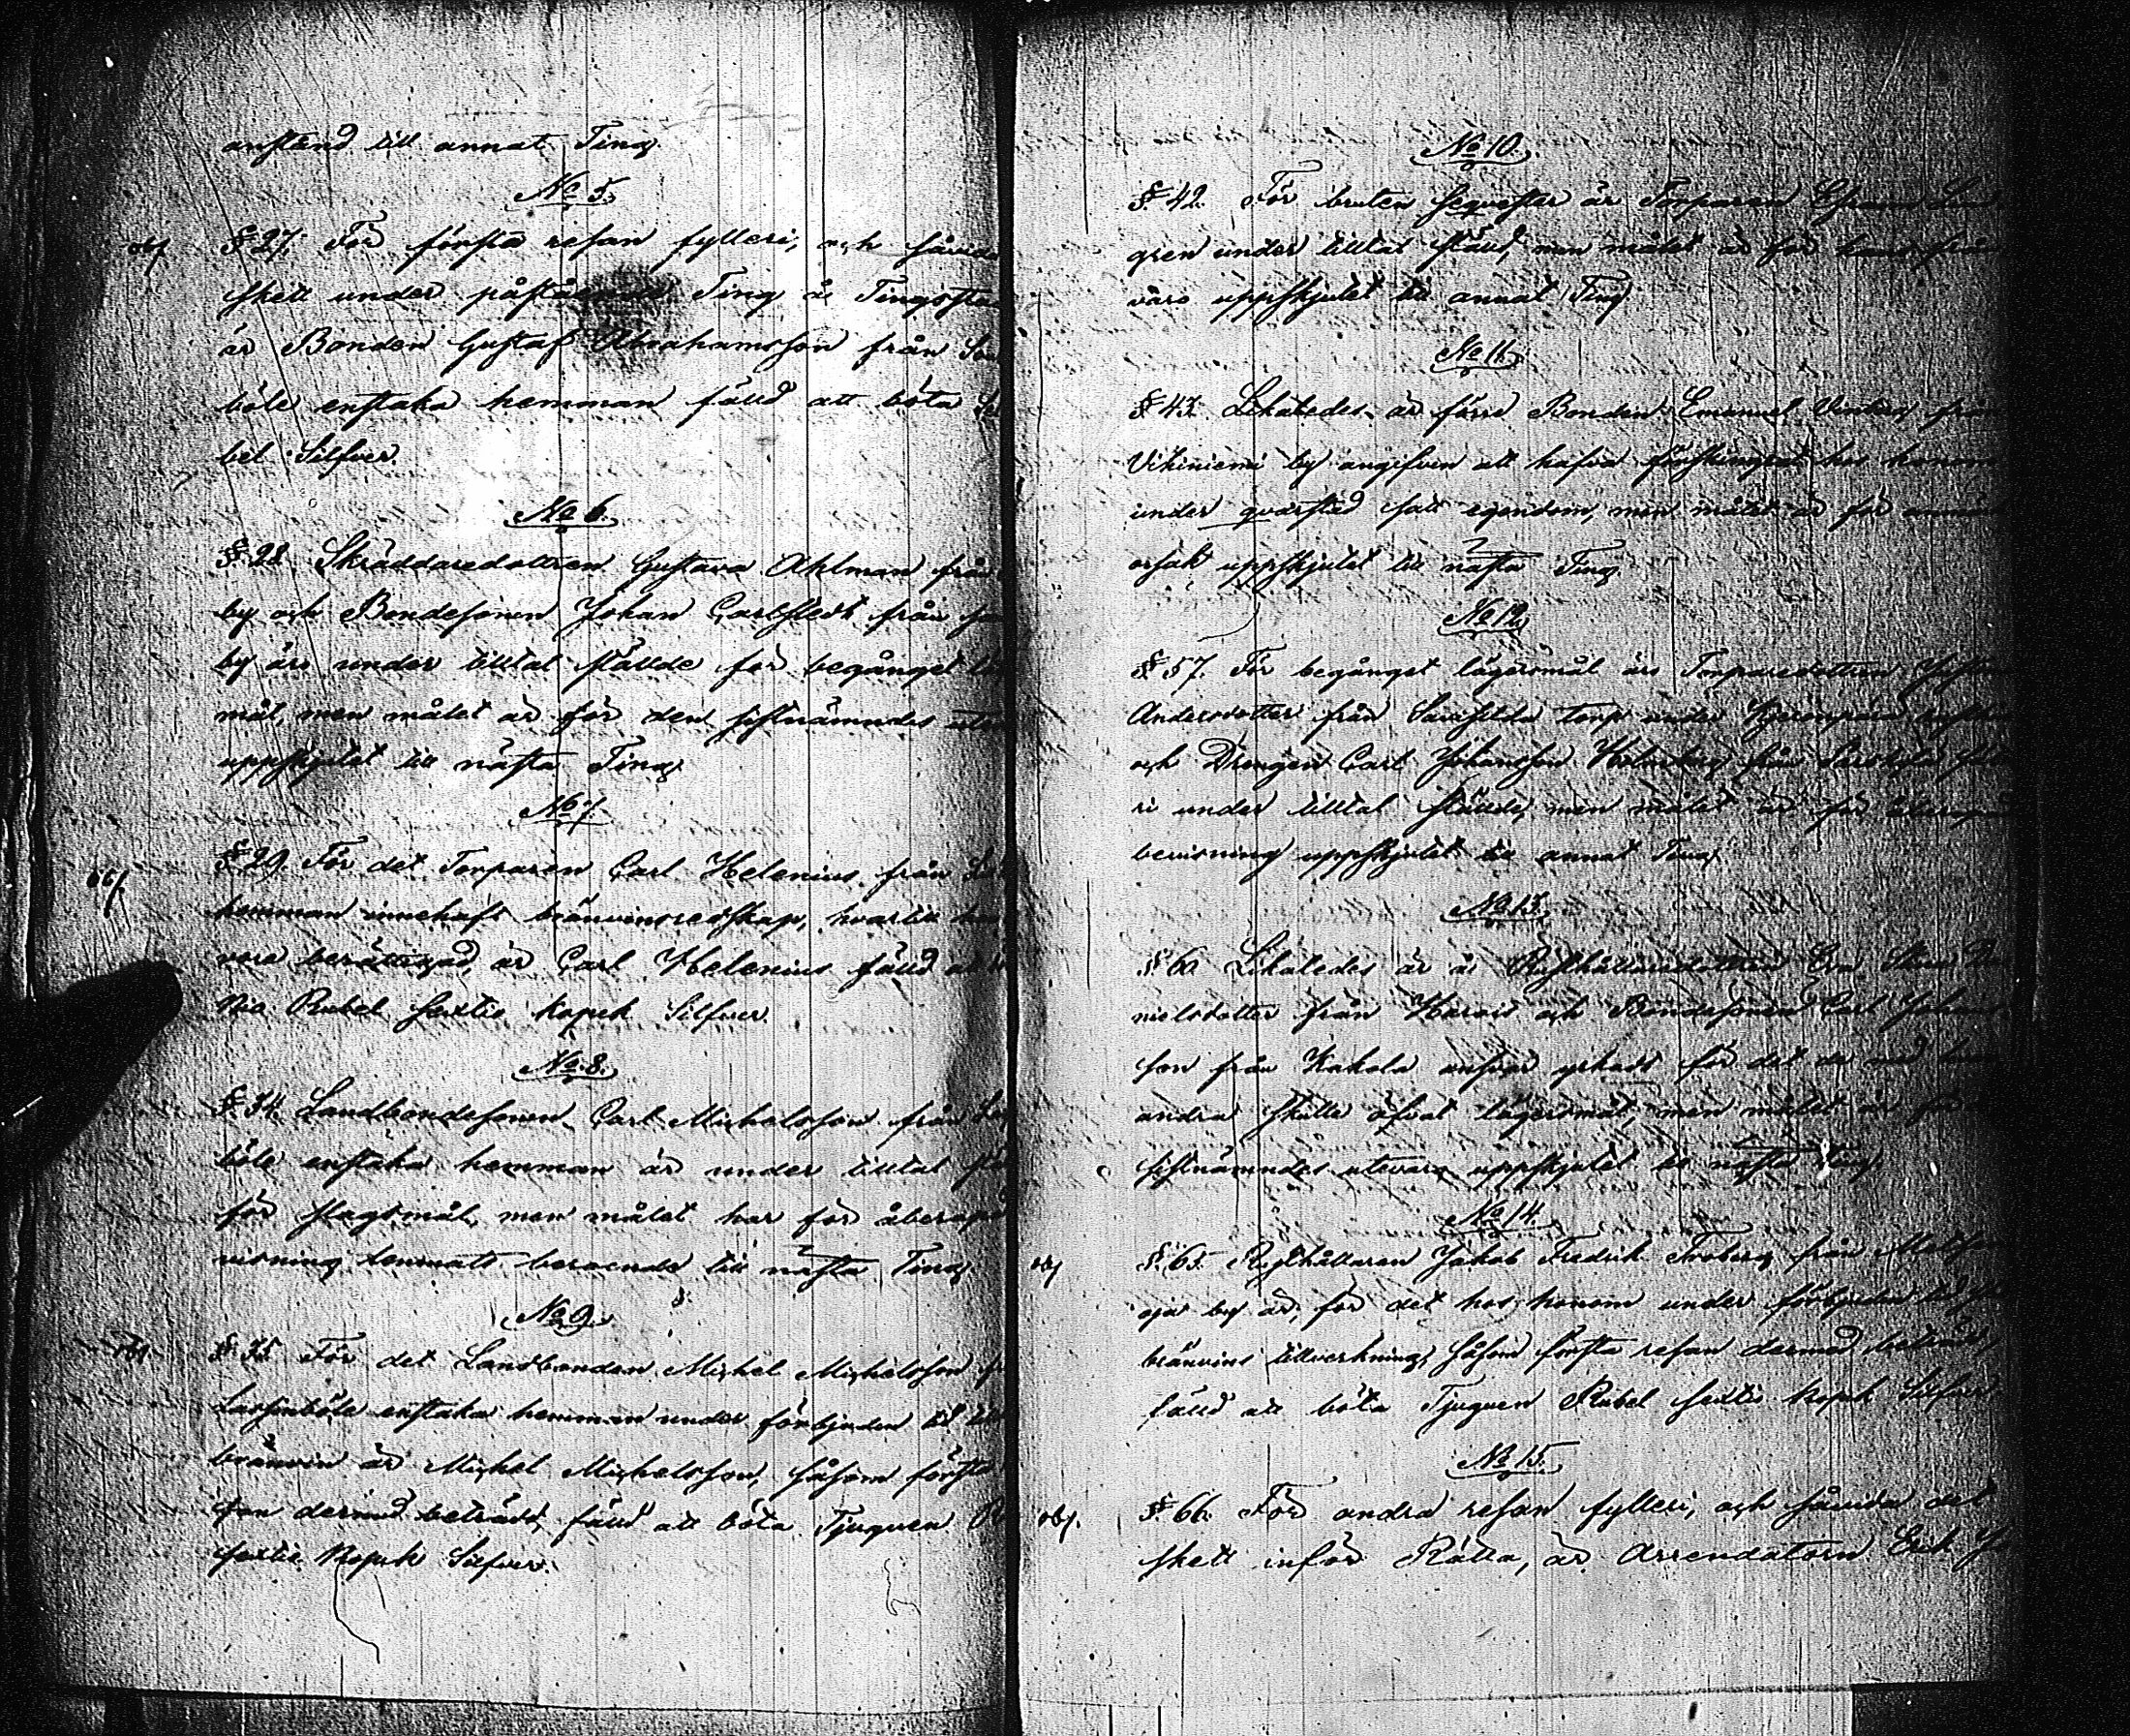 anstånd till annat Ting.
No 5.
obs. §. 27. För första resan fylleri, och såvida
skett under påstående Ting å Tingsstad
är Bonden Gustaf Abrahamsson från
böle enstaka hemman fälld att böta
bel Silfver.
No 6.
§. 28. Skräddaredottren Gustava Ahlman från
by och Bondesonen Johan Carlstedt från
by äro under tilltal ställde för begånget
mål, men målet är för den sistnämndes
uppskjutet till nästa Ting.
No 7.
obs. §. 29. För det Torparen Carl Helenius från
hemman innehaft bränvinsredskap, hvartill
vara berättigad, är Carl Helenius fälld att
Rubel sextio kopek Silfver.
No 8.
§. 34. Landbondesonen Carl Michelsson från
böle enstaka hemman är under tilltal
för slagsmål, men målet har för åberopad
visning lemnats beroende till nästa Ting.
No 9.
obs. §. 35. För det Landbonden Michel Michelsson
Lassinböle enstaka hemman under förbjuden tid
bränvin är Michel Michelsson, såsom första
san dermed beträdd, fälld att böta Tjuguen
sextio Kopek Silfver.
No 10.
§. 42. För bruten sequester är Torparen
gren under tilltal ställd, men målet är för hans från
varo uppskjutet till annat Ting.
No 11.
§. 43. Likaledes är förre Bonden Emanuel från
Vihiniemi by angifven att hafva förskingrat hos honom
under qvarstad satt egendom, men målet är för
orsak uppskjutet till nästa Ting.
No 12.
§. 57. För begånget lägersmål äro Torparedottren
Andersdotter från torp under
och Drengen Carl Johansson Holmberg från
ri under tilltal ställde, men målet är för
bevisning uppskjutet till annat Ting.
No 13.
§. 60. Likaledes är å Rusthållaredottren Eva Stina
nielsdotter från och Bondesonen Carl Johans
son från Kakola ansvar yrkadt för det de med
andra skulle öfvat lägersmål, men målet är för
sistnämndes utevaro uppskjutet till nästa Ting.
No 14.
obs. §. 65. Rusthållaren Jakob Fredrik Froberg från
oja by är, för det hos honom under förbjuden tid
bränvins tillverkning, såsom första resan dermed beträdd,
fälld att böta Tjuguen Rubel sextio kopek Silfver
No 15.
obs. §. 66. För andra resan fylleri, och såvida det
skett inför Rätta, är Arrendatorn Erik